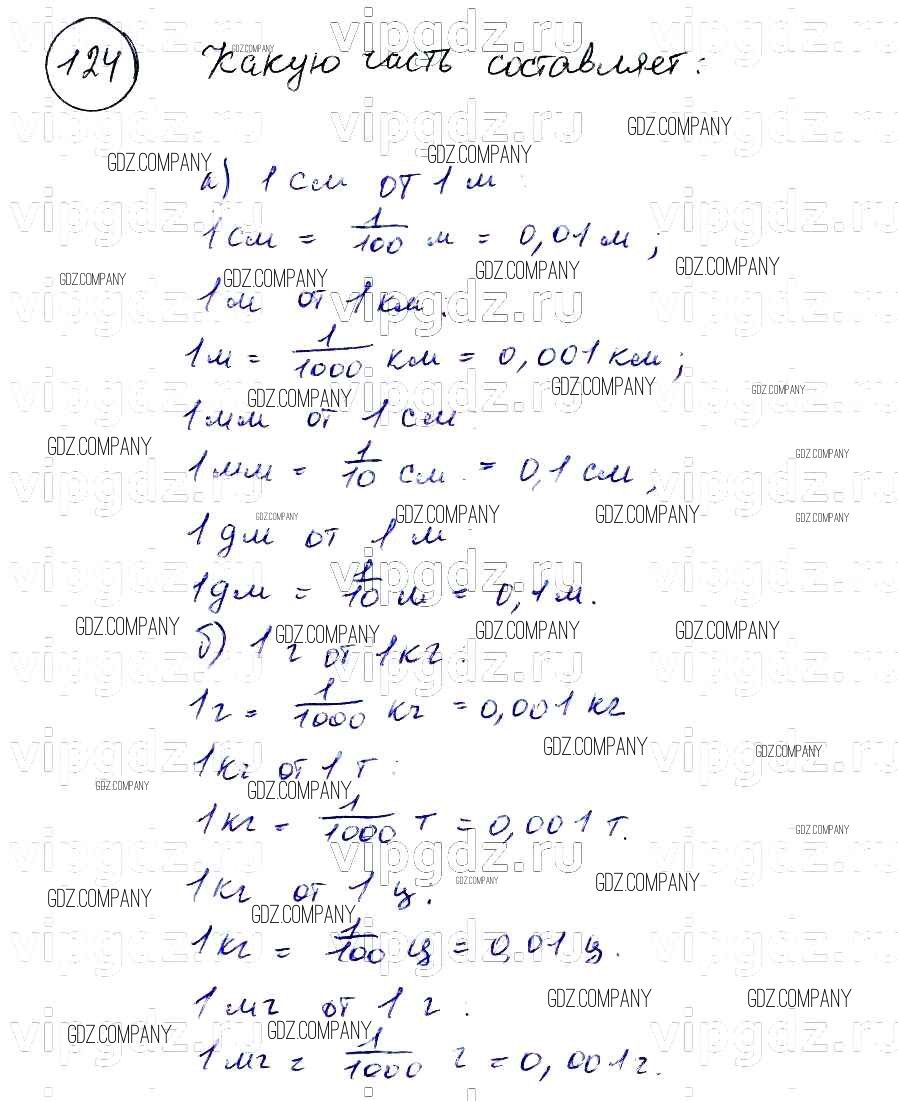 124 Какую часть составляет:
а) 1 см от 1 м
1 см = 1/100 м = 0,01 м ;
1 м от 1 км.
1 м = 1/1000 км = 0,001 км ;
1 мм от 1 см
1 мм = 1/10 см. = 0,1 см ;
1 дм от 1 м
1 дм = 1/10 м = 0,1 м.
б) 1 г от 1 кг.
1 г = 1/1000 кг = 0,001 кг
1 кг от 1 т :
1 кг = 1/1000 т = 0,001 т.
1 кг от 1 ц.
1 кг = 1/100 ц = 0,01 ц.
1 мг от 1 г.
1 мг = 1/1000 г = 0,001 г.
vipgdz.ru
GDZ.COMPANY